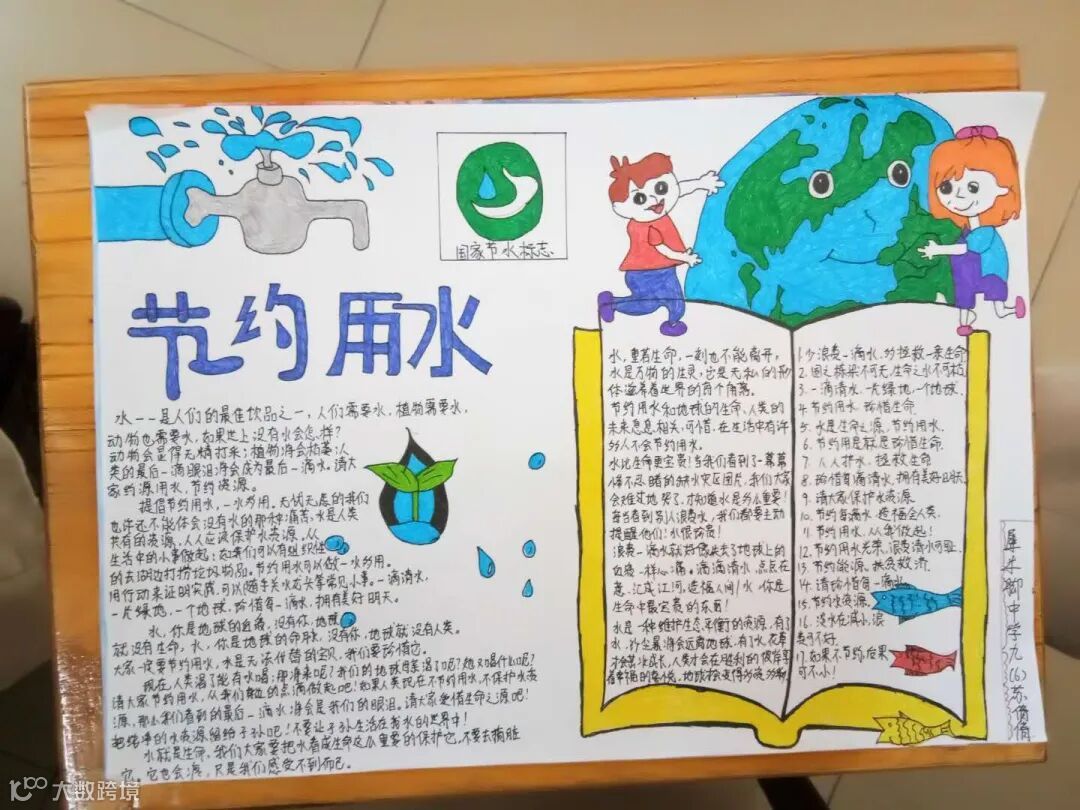 国家节水标志
节约用水
水——是人们的最佳饮品之一,人们需要水,植物需要水,
动物也需要水,如果世上没有水会怎样?
动物会显得无精打采;植物将会枯萎;人
类的最后一滴眼泪将会成为最后一滴水。请大
家约源用水,节约资源。
提倡节约用水,一水多用。无忧无虑的我们
也许还不能体会没有水的那种痛苦,水是人类
共有的资源,人人应该保护水资源。从
生活中的小事做起;如我们可以有组织性
的去湖边打捞垃圾物品。节约用水可以做一水多用。
用行动来证明实践,可以随手关水龙头等常见小事。一滴清水,
一片绿地,一个地球,珍惜每一滴水,拥有美好明天。
水,你是地球的血液,没有你,地球
就没有生命,水,你是地球的命脉,没有你,地球就没有人类。
大家一定要节约用水,水是无法代替的宝贝,我们要珍惜它。
现在人类渴了能有水喝;那将来呢?我们的地球母亲渴了呢?她又喝什么呢?
请大家节约用水,从我们身边的点滴做起吧!如果人类现在不节约用水,不保护水资
源,那么我们看到的最后一滴水将会是我们的眼泪。请大家爱惜生命之源吧!
把纯净的水资源留给子孙吧!不要让子孙生活在有水的世界中!
水就是生命,我们大家要把水看成生命这么重要的保护它,不要去搞脏
它。它也会渴,只是我们感受不到而已。
水,重若生命,一刻也不能离开,
水是万物的生灵,它是无私的形
体滋养着世界的每个角落。
节约用水和地球的生命、人类的
未来息息相关,可惜,在生活中有许
多人不会节约用水。
水比生命更宝贵!当我们看到了一幕幕
惨不忍睹的缺水灾区图片,我们大家
会难过地哭了,才知道水是多么重要!
每当看到别人浪费水,我们都要主动
提醒他们:水很珍贵!
浪费一滴水就好像失去了地球上的
血液一样心痛。滴滴清水,点点在
意,汇成江河,造福人间!水,你是
生命中最宝贵的东西!
水是一种维护生态平衡的资源,有了
水,沙尘暴将会远离地球,有了水,花草
才会茁壮成长,人类才会在胜利的彼岸享
1.少浪费一滴水,多拯救一条生命
2.国之栋梁不可无,生命之水不可枯
3.一滴清水,一片绿地,一个地球
4.节约用水 珍惜生命
5.水是生命之源,节约用水。
6.节约用是标是珍惜生命.
7.人人护水,拯救生命
8.珍惜每滴清水,拥有美好明天.
9.请大家保护水资源
10.节约每滴水,造福全人类.
11.节约用水,从我做起!
12.节约用水光荣,浪费清水可耻.
13.节约能源,扶贫救济
14.请珍惜每一滴水
15.节约水资源,
16.淡水在减小,浪
费可不好
17.如果不节约,后果
可不小!
中学九(6)苏倩倩
大数跨境